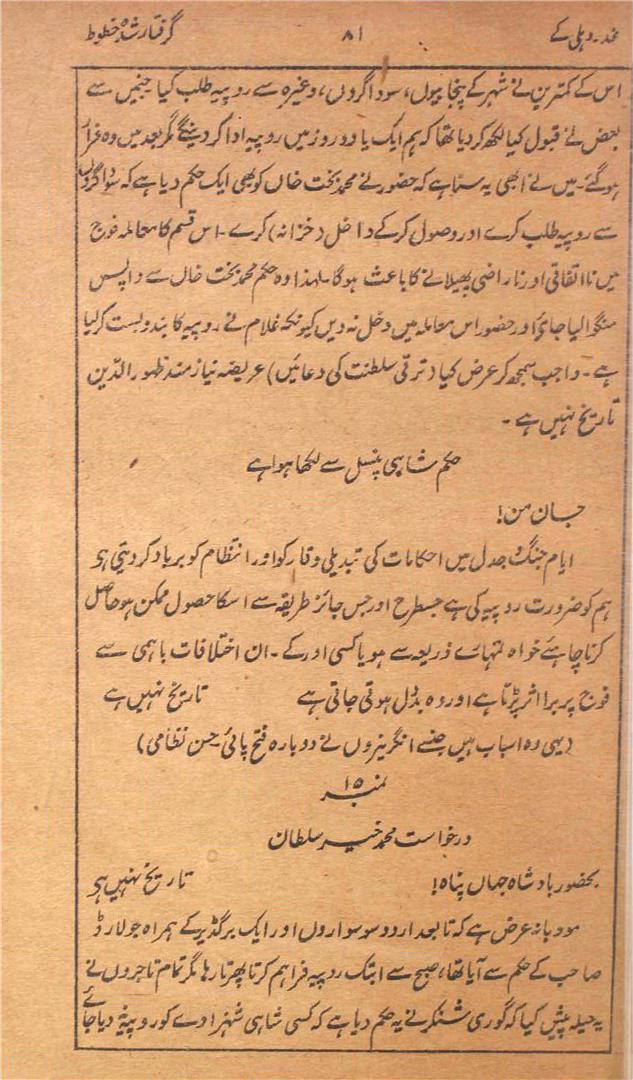 غدر دہلی کے ۸۱ گرفتار شدہ خطوط
اس کے کمترین نے شہر کے پنجابیوں، سوداگروں، وغیرہ سے روپیہ طلب کیا جنمیں سے
بعض نے قبول کیا لکھ کر دیا تھا کہ ہم ایک یا دو روز میں روپیہ ادا کردینگے مگر بعد میں وہ فرار
ہوگئے۔ میں نے ابھی یہ سنا ہے کہ حضور نے محمد بخت خاں کو بھی ایک حکم دیا ہے کہ سوداگروں
سے روپیہ طلب کرے اور وصول کرکے داخل (خزانہ) کرے۔ اس قسم کا معاملہ فوج
میں نا اتفاقی اور ناراضی پھیلانے کا باعث ہوگا۔ لہذا وہ حکم محمد بخت خاں سے واپس
منگوا لیا جائے اور حضور اس معاملہ میں دخل نہ دیں کیونکہ غلام نے روپیہ کا بندوبست کرلیا
ہے۔ واجب سمجھ کر عرض کیا (ترقی سلطنت کی دعائیں) عریضہ نیازمند ظہور الدین
تاریخ نہیں ہے۔
حکم شاہی پنسل سے لکھا ہوا ہے
جان من!
ایام جنگ و جدل میں احکامات کی تبدیلی وقار کو اور انتظام کو برباد کر دیتی ہے
ہم کو ضرورت روپیہ کی ہے جسطرح اور جس جائز طریقہ سے اسکا حصول ممکن ہو حاصل
کرنا چاہئے خواہ تمہارے ذریعہ سے ہو یا کسی اور کے۔ ان اختلافات باہمی سے
فوج پر برا اثر پڑتا ہے اور وہ بددل ہوتی جاتی ہے تاریخ نہیں ہے
(یہی وہ اسباب ہیں جنسے انگریزوں نے دوبارہ فتح پائی۔ حسن نظامی)
نمبر ۱۵
درخواست محمد خیر سلطان
بحضور بادشاہ جہاں پناہ! تاریخ نہیں ہے
مودبانہ عرض ہے کہ تابعدار دو سو سواروں اور ایک برگڈیر کے ہمراہ جو لارڈ
صاحب کے حکم سے آیا تھا، صبح سے ابتک روپیہ فراہم کرتا پھرتا رہا مگر تمام تاجروں نے
یہ حیلہ پیش کیا کہ گوری شنکر نے یہ حکم دیا ہے کہ کسی شاہی شہزادے کو روپیہ نہ دیا جائے